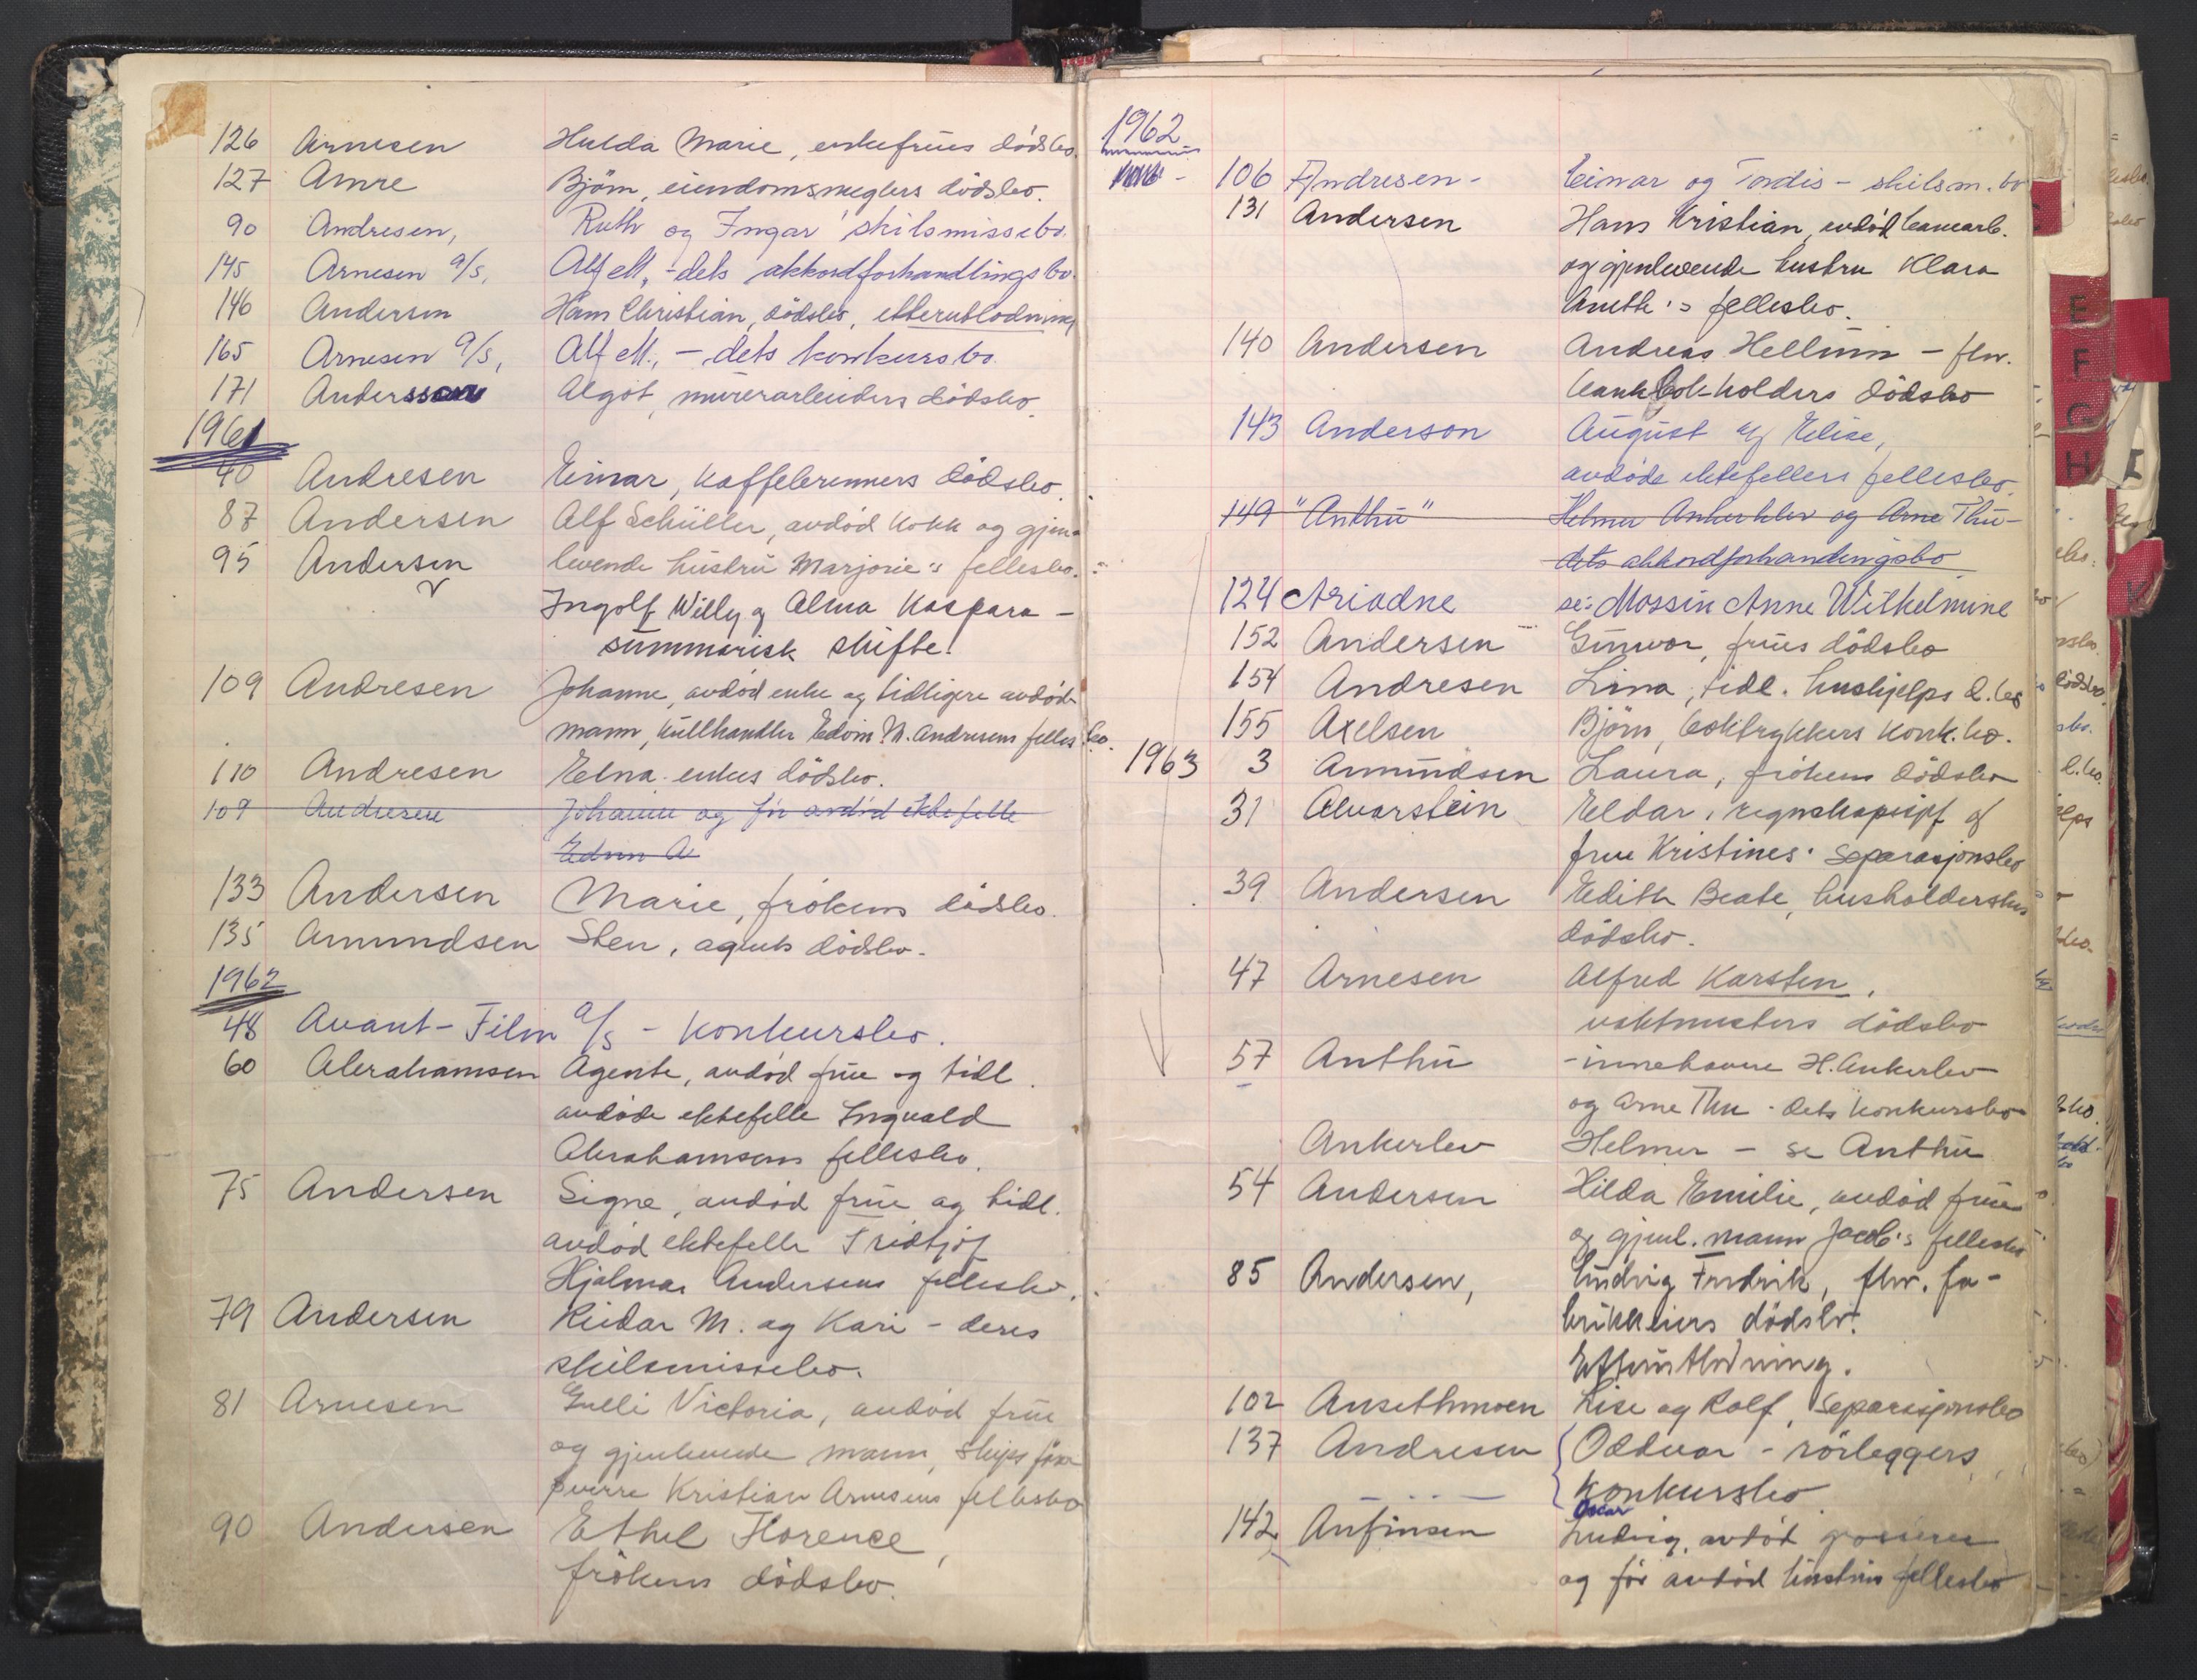 126 Arnesen Hulda Marie, enkefrues dödsbo.
127 Amre Björn, eiendomsmeglers dödsbo.
90 Andresen, Ruth og Ingar' skilsmissebo.
145 Arnesen A/S, Alf M., - dets akkordforhandlingsbo.
146 Andersen Hans Christian, dödsbo, etterutlodning
165 Arnesen A/S, Alf M., - dets konkursbo
171 Andersson Algot, murerarbeiders dödsbo.
1961
40 Andresen Einar, kaffebrenners dödsbo.
87 Andersen Alf Schüller, avdöd kokk og gjen-
95 Andersen levende hustru Marjorie's fellesbo.
Ingolf Willy og Alma Kaspara -
summarisk skifte.
109 Andresen Johanne, avdöd enke og tidligere avdöd
mann, kullhandler Edvin N. Andresens fellesbo.
110 Andresen Elna enkes dödsbo.
109 Andresen Johanne og för avdöd ektefelle
Edvin A
133 Andersen Marie, frökens dödsbo.
135 Amundsen Sten, agents dödsbo.
1962
48 Avant-Film A/S - konkursbo.
60 Abrahamsen Agente, avdöd frue og tidl.
avdöde ektefelle Ingvald
Abrahamsens fellesbo.
75 Andersen Signe, avdöd frue og tidl.
avdöd ektefelle Fridtjof
Hjalmar Andersens fellesbo.
79 Andersen Reidar M. og Kari - deres
skilsmissebo.
81 Arnesen Gulli Victoria, avdöd frue
og gjenlevende mann, skipsförer
Sverre Kristian Arnesens fellesbo
90 Andersen Ethel Florence,
frökens dödsbo.
1962
106 Andresen - Einar og Tordis - skilsm. bo
131 Andersen Hans Kristian, avdöd
og gjenlevende hustru Klara
Anette's fellesbo.
140 Andersen Andreas Hellum - fhv.
bankbokholders dödsbo
143 Anderson August og Elise,
avdöde ektefellers fellesbo.
149 "Anthu" Helmer Ankerklev og Arne Thu-
dets akkordforhandingsbo
124 Ariadne se: Mossin Anne Wilhelmine
152 Andersen Gunvor, frues dödsbo
154 Andresen Lina, tidl. hushjelps d.bo
155 Axelsen Björn, boktrykkers konk.bo.
1963 3 Amundsen Laura, frökens dödsbo
31 Alvarstein Eldar, regnskapssjef og
frue Kristines' Separasjonsbo
39 Andersen Edith Beate, husholderskes
dödsbo.
47 Arnesen Alfred Karsten,
vaktmesters dödsbo
57 Anthu - innehavere H. Ankerlev
og Arne Thu - dets konkursbo
Ankerlev Helmer - se Anthu
54 Andersen Hilda Emilie, avdöd frue
og gjenl. mann Jacob's fellesbo
85 Andersen, Ludvig Fredrik, fhv. fa-
brikkeiers dödsbo.
Etterutlodning.
102 Ansethmoen Lise og Rolf, Separasjonsbo
137 Andresen Oddvar - rörleggers
konkursbo
Oscar
142 Anfinsen Ludvig, avdöd
og för avdöd hustrus fellesbo
E
F
G
H
I
K